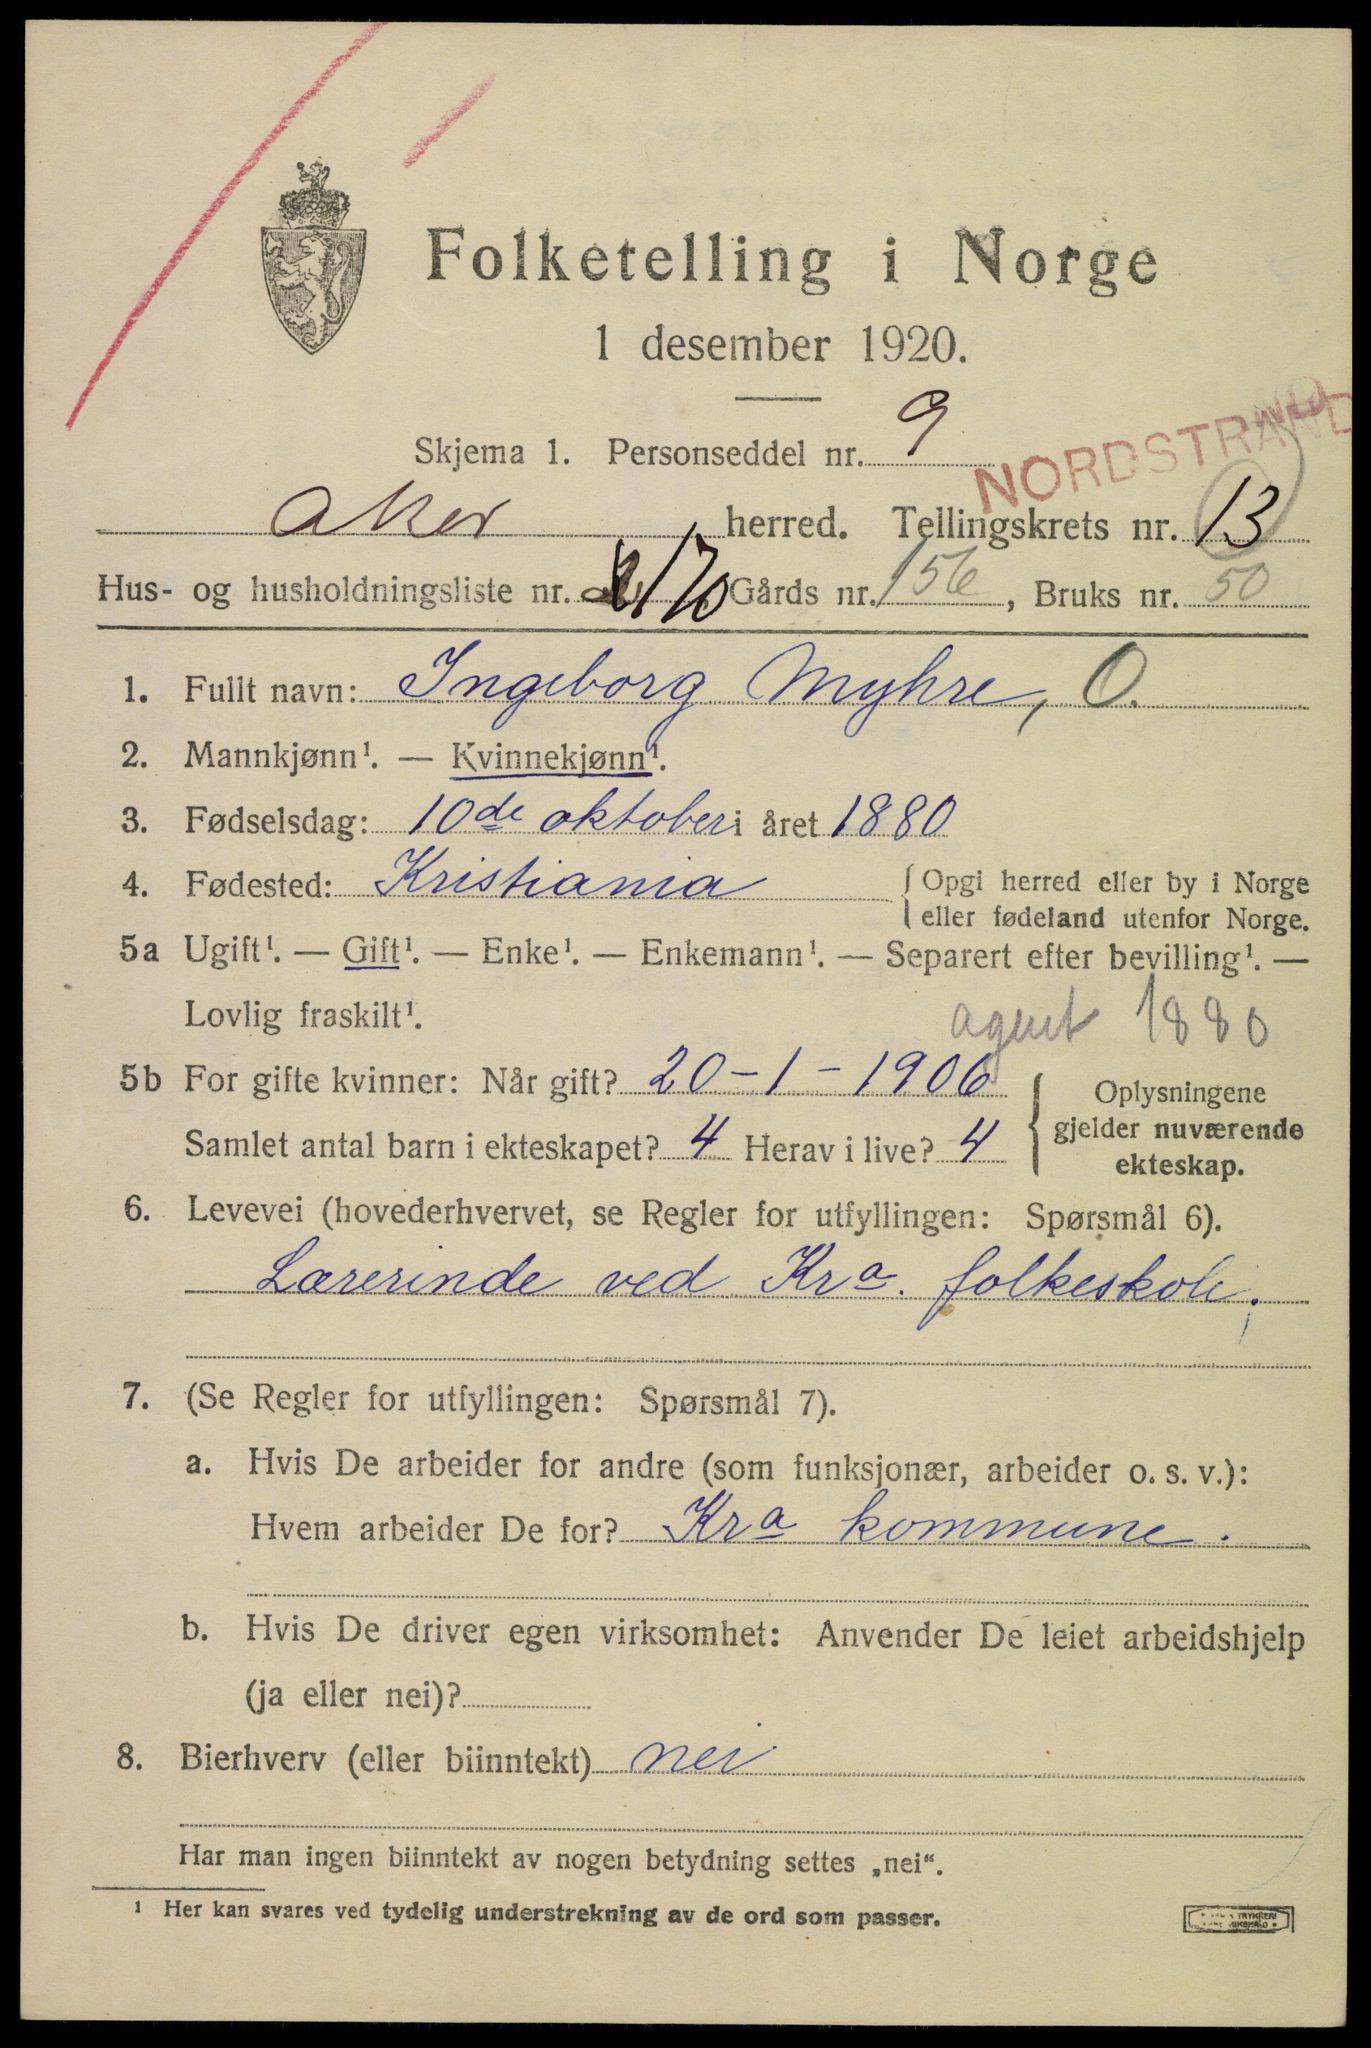 Folketelling i Norge
1 desember 1920.
Skjema 1. Personseddel nr. 9
NORDSTRAND
Aker herred. Tellingskrets nr. 13
Hus- og husholdningsliste nr. 170 Gårds nr. 156, Bruks nr. 50
1. Fullt navn: Ingeborg Myhre, O.
2. Mannkjønn¹. — Kvinnekjønn¹.
3. Fødselsdag: 10de oktober i året 1880
4. Fødested: Kristiania {Opgi herred eller by i Norge
eller fødeland utenfor Norge.
5a Ugift¹. — Gift¹. — Enke¹. — Enkemann¹. — Separert efter bevilling¹. —
Lovlig fraskilt¹.
agent 1880
5b For gifte kvinner: Når gift? 20-1-1906 { Oplysningene
gjelder nuværende
ekteskap.
Samlet antal barn i ekteskapet? 4 Herav i live? 4
6. Levevei (hovederhvervet, se Regler for utfyllingen: Spørsmål 6).
Lærerinde ved Kra. folkeskole.
7. (Se Regler for utfyllingen: Spørsmål 7).
a. Hvis De arbeider for andre (som funksjonær, arbeider o. s. v.):
Hvem arbeider De for? Kra kommune.
b. Hvis De driver egen virksomhet: Anvender De leiet arbeidshjelp
(ja eller nei)?
8. Bierhverv (eller biinntekt) nei
Har man ingen biinntekt av nogen betydning settes „nei“.
¹ Her kan svares ved tydelig understrekning av de ord som passer.